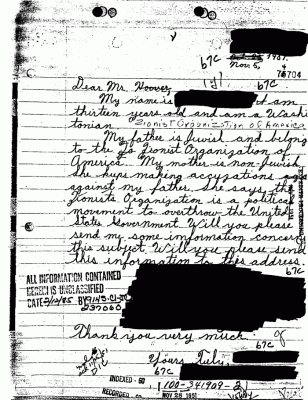 b7C
Nov. 5,
b7C
76704
Dear Mr. Hoover,
My name is I am
thirteen years old and am a Washi
tonian. Zionist Organization of America
My father is Jewish and belong
to the Zionist Organization
America. My mother is non-Jewish
She keeps making accuzations
against my father. She says, th
Zionists Organization is a political
movement to overthrow the United
State Government. Will you please
send my some imformation concern
this subject. Will you please send
this information to this address.
b7C
ALL INFORMATION CONTAINED
HEREIN IS UNCLASSIFIED
DATE BY
237060
Thank you very much.
b7C
Yours Truly,
b7C
INDEXED - 60
100-341909-2
RECORDED - 60
NOV 28 1951